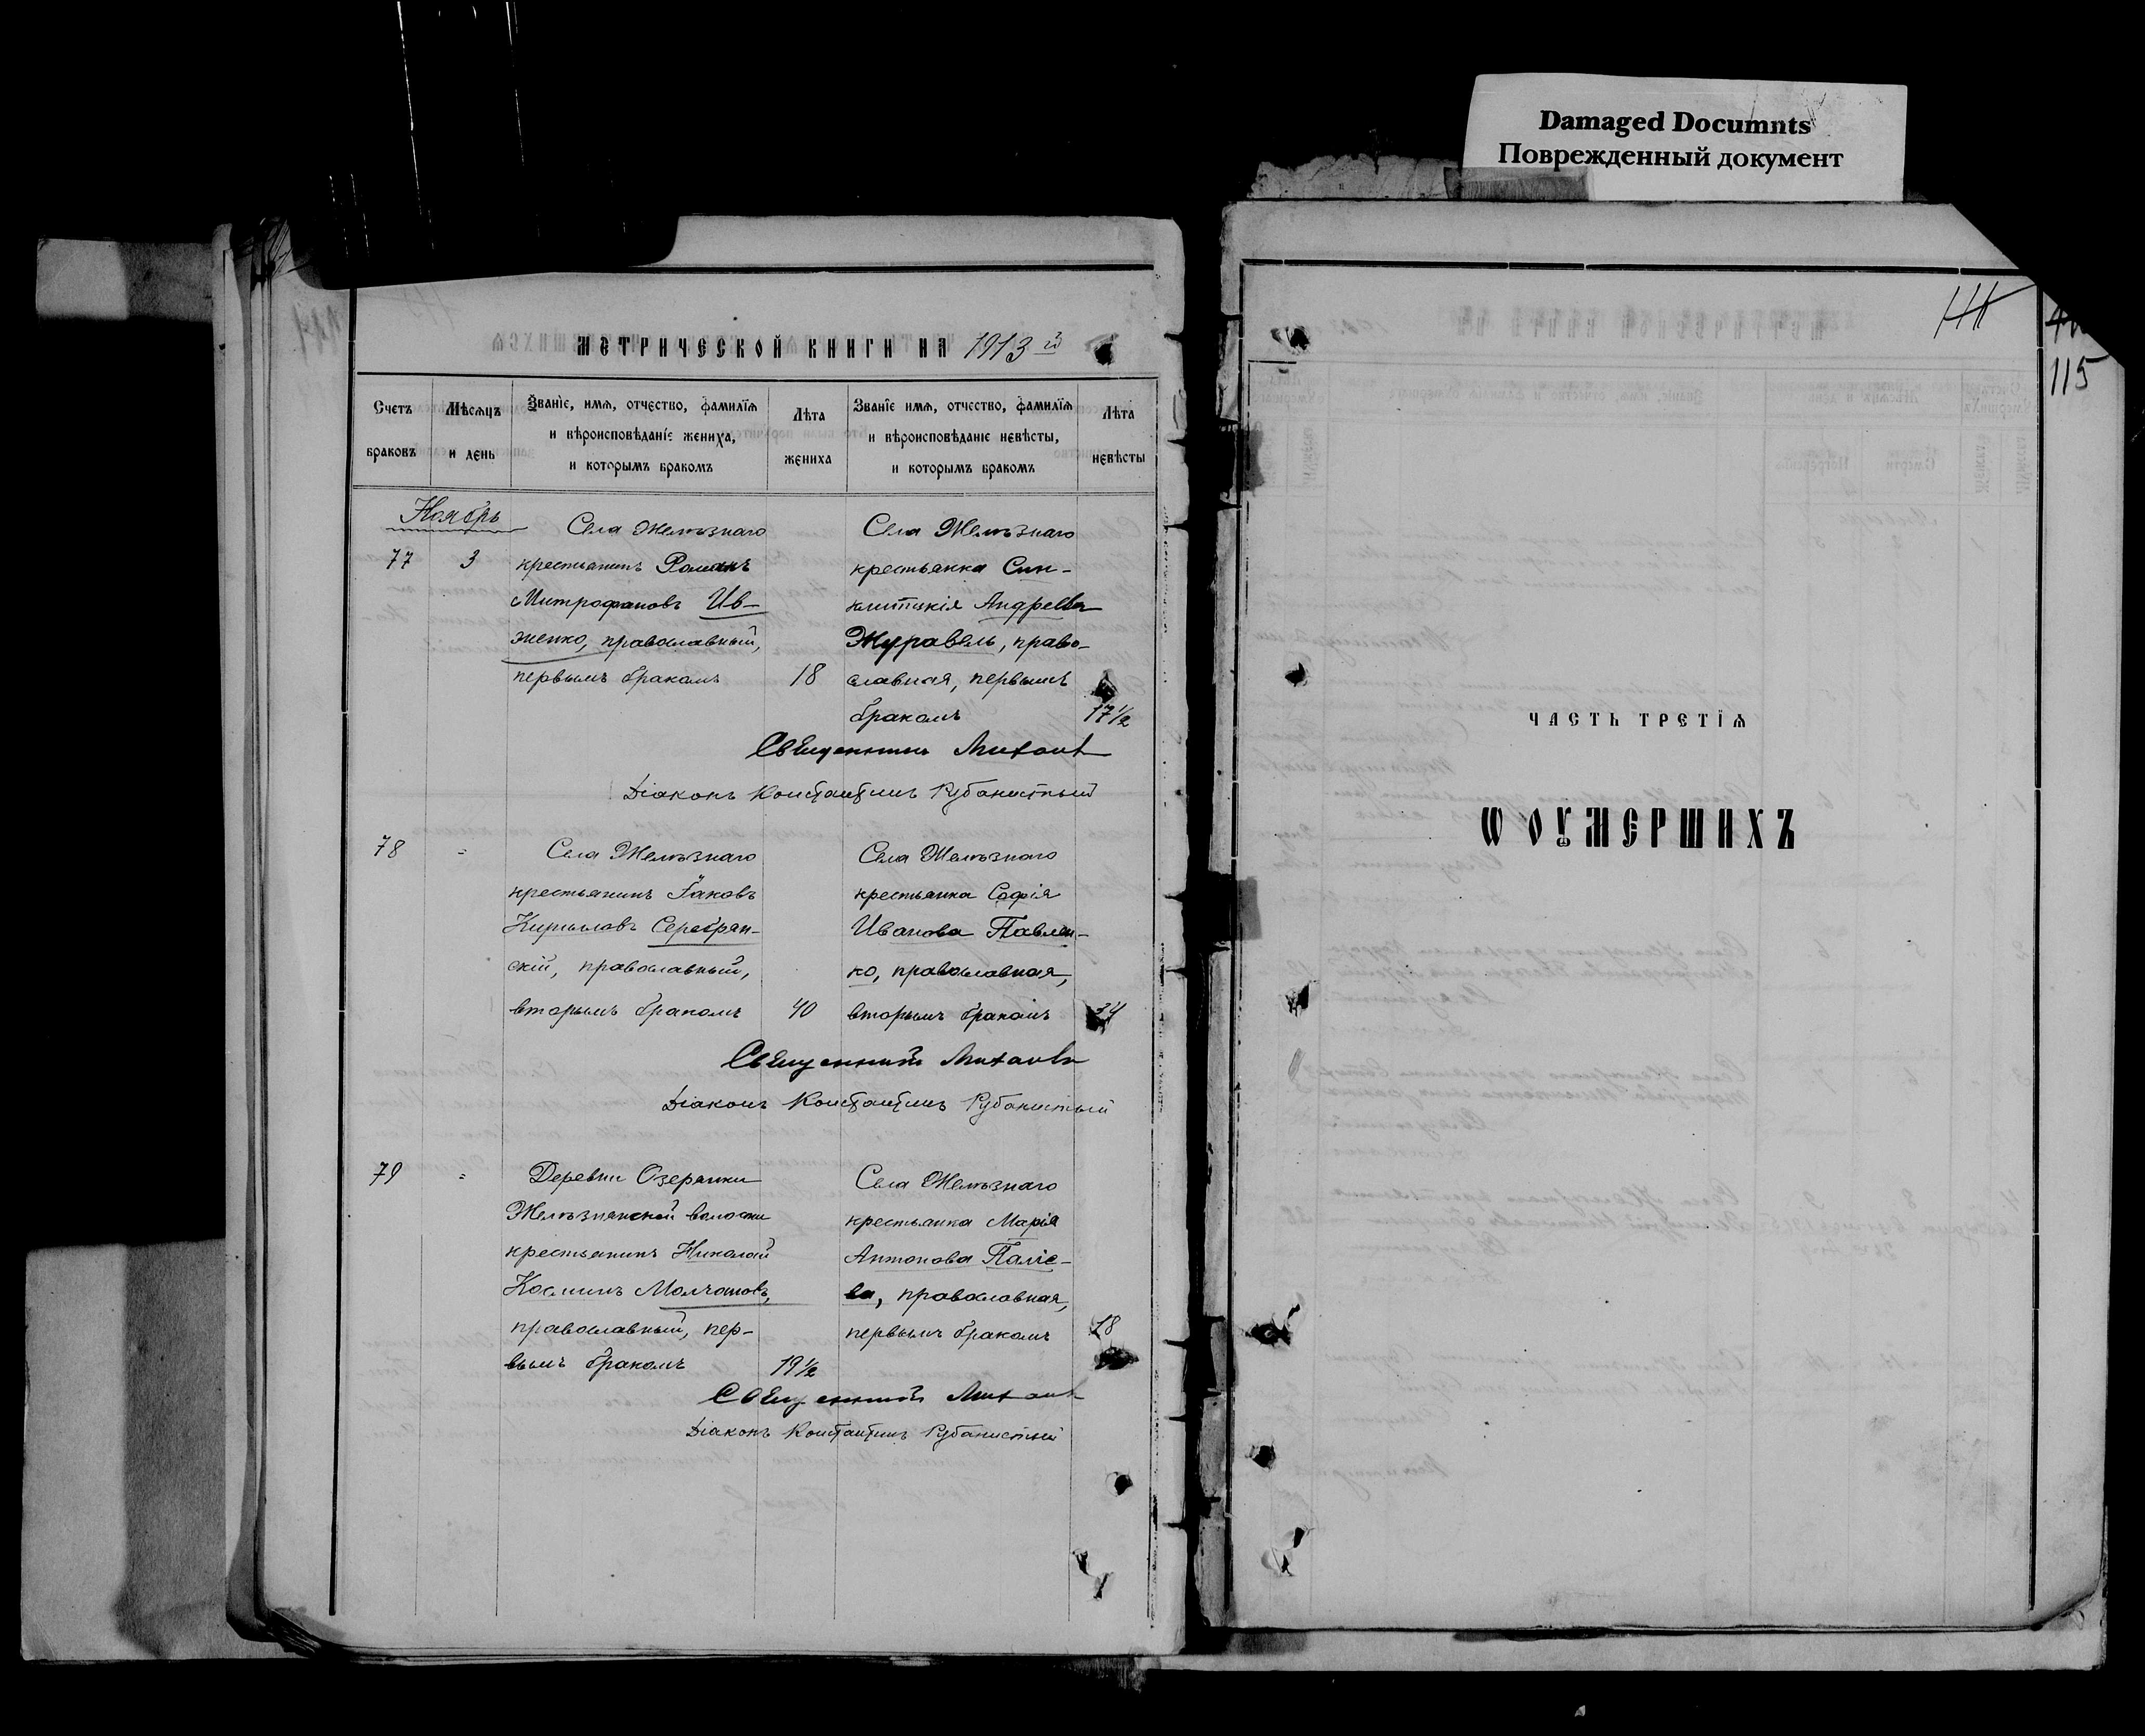 Damaged Documnts
Поврежденный документ
метрической книги на 1913 й
Счетъ браковъ
Мѣсяцъ и день
Званїе, имя, отчество, фамилїя и вѣроисповѣданїе жениха, и которымъ бракомъ
Лѣта жениха
Званїе имя, отчество, фамилїя и вѣроисповѣданїе невѣсты, и которымъ бракомъ
Лѣта невѣсты
Ноябрь
77
3
Села Желѣзнаго
крестьянинъ Романъ
Митрофановъ Ив-
женко, православный,
первымъ бракомъ
18
Села Желѣзнаго
крестьянка Син-
клитикія Андреева
Журавель, право-
славная, первымъ
бракомъ
17 1/2
Священникъ
Діаконъ Константинъ Рубанистый
78
=
Села Желѣзнаго
крестьянинъ Іаковъ
Кирилловъ Серебрян-
скій, православный,
вторымъ бракомъ
40
Села Желѣзнаго
крестьянка Софія
Иванова Павлен-
ко, православная,
вторымъ бракомъ
34
Священникъ
Діаконъ Константинъ Рубанистый
79
=
Деревни Озерянки
Желѣзнянской волости
крестьянинъ Николай
Косминъ Молчановъ,
православный, пер-
вымъ бракомъ
19 1/2
Села Желѣзнаго
крестьянка Марія
Антонова Паліе-
ва, православная,
первымъ бракомъ
18
Священникъ
Діаконъ Константинъ Рубанистый
115
ЧАСТЬ ТРЕТЇЯ
Ѡ ОУМЕРШИХЪ